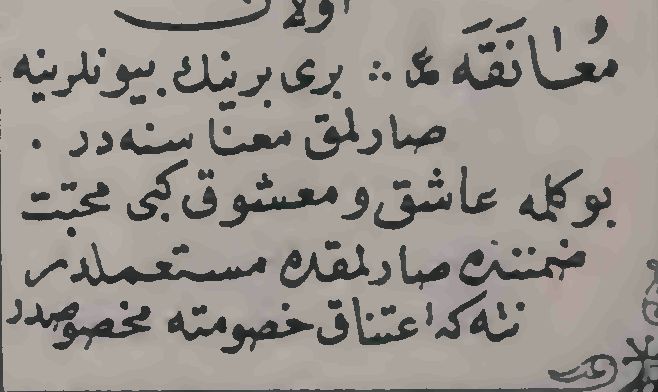 اولان
مُعَانَقَه ع ∴ بری برینك بیونلرینه
صارلمق معنا سنه در .
بو كلمه عاشق و معشوق كبی محبّت
ضمننده صارلمقده مستعملدر
نته كه اعتناق خصومته مخصوصدر